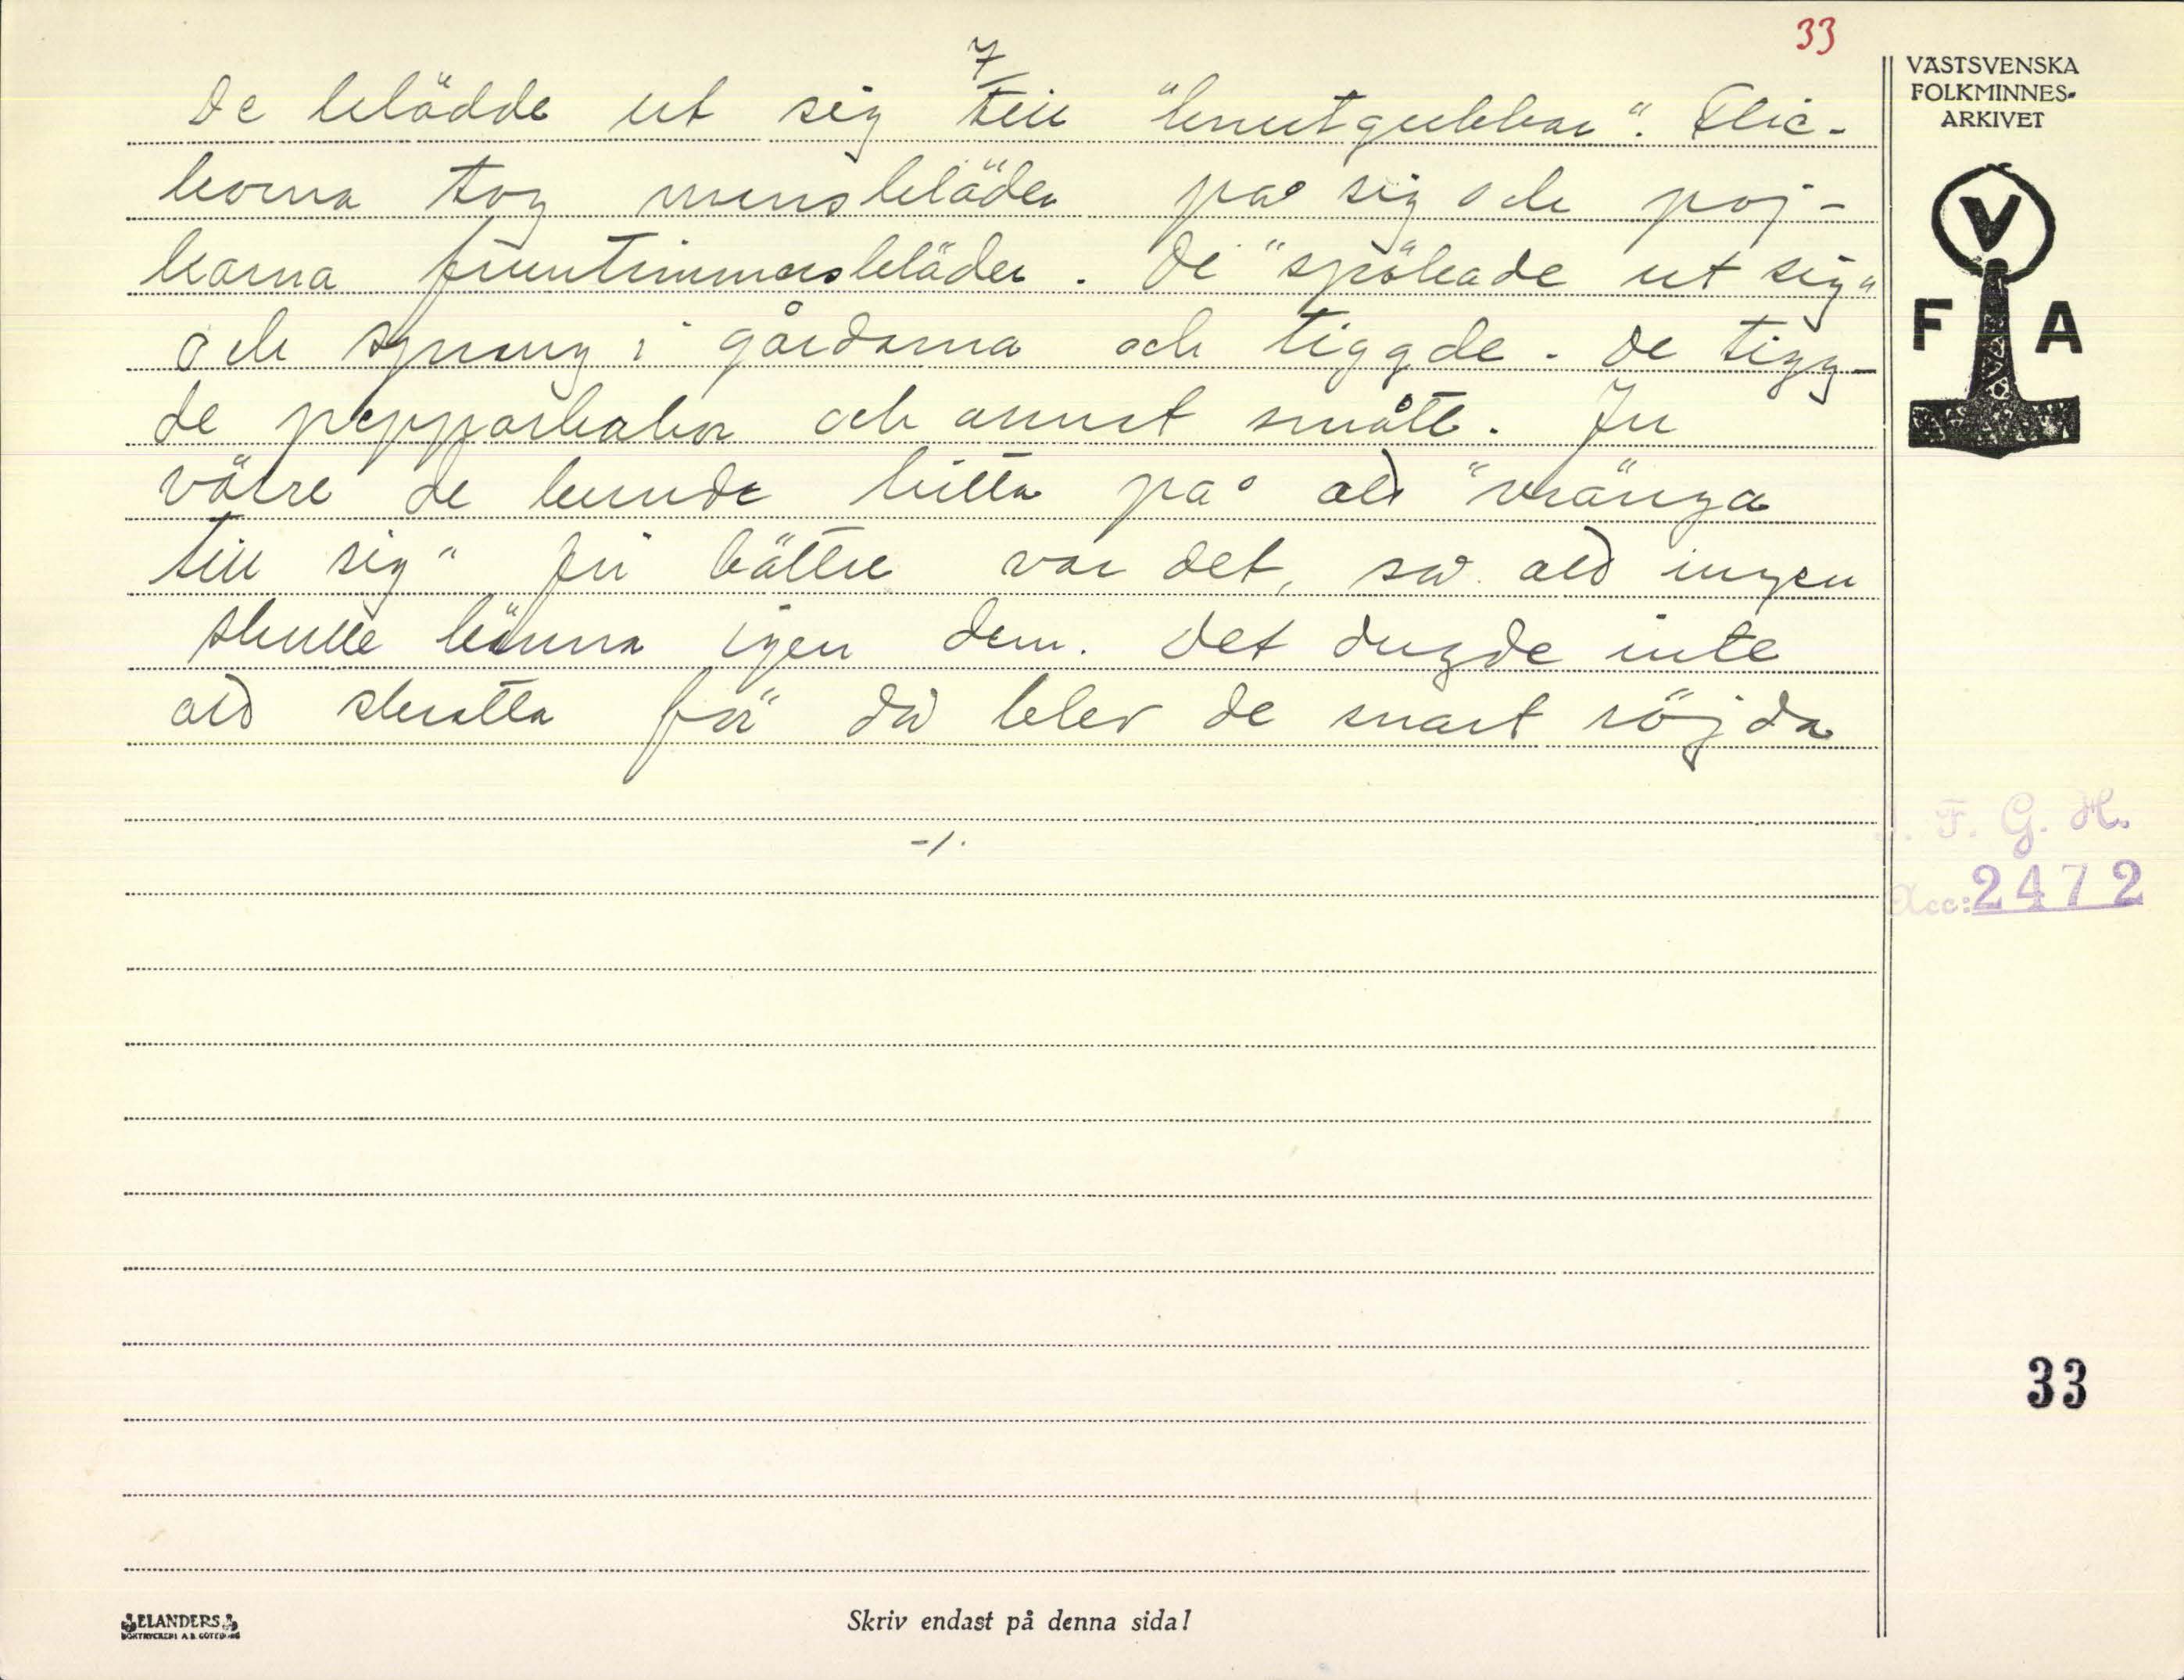 33
7
De klädde ut sig till "knutgubbar". Flic-
korna tog manskläder på sig och poj-
karna fruntimmerskläder. De "spökade ut sig"
och sprang i gårdarna och tiggde. De tigg-
de pepparkakor och annat smått. Ju
värre de kunde hitta på att "vränga
till sig" ju bättre var det, så att ingen
skulle känna igen dem. Det dugde inte
att skratta för då blev de snart röjda
-/.
VÄSTSVENSKA
FOLKMINNES-
ARKIVET
V
F A
. F. G. H.
Acc: 2472
33
ELANDERS
BOKTRYCKERI A.B. GÖTEBORG
Skriv endast på denna sida!